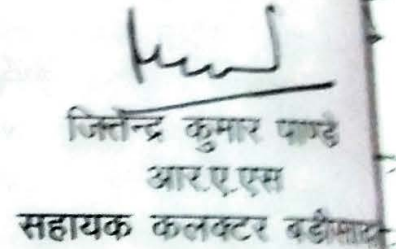 जितेन्द्र कुमार पाण्डे
आर.ए.एस
सहायक कलक्टर बडीसादड